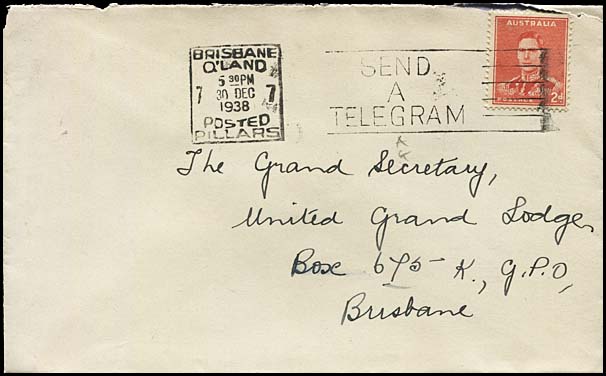 BRISBANE
Q'LAND
5 30PM
7 30 DEC 7
1938
POSTED
PILLARS
SEND
A
TELEGRAM
AUSTRALIA
POSTAGE 2d
The Grand Secretary,
United Grand Lodge,
Box 675 K., G.P.O,
Brisbane